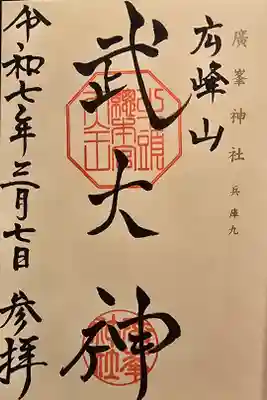 廣峯神社 兵庫九
広峰山
武大神
令和七年三月七日 参拝